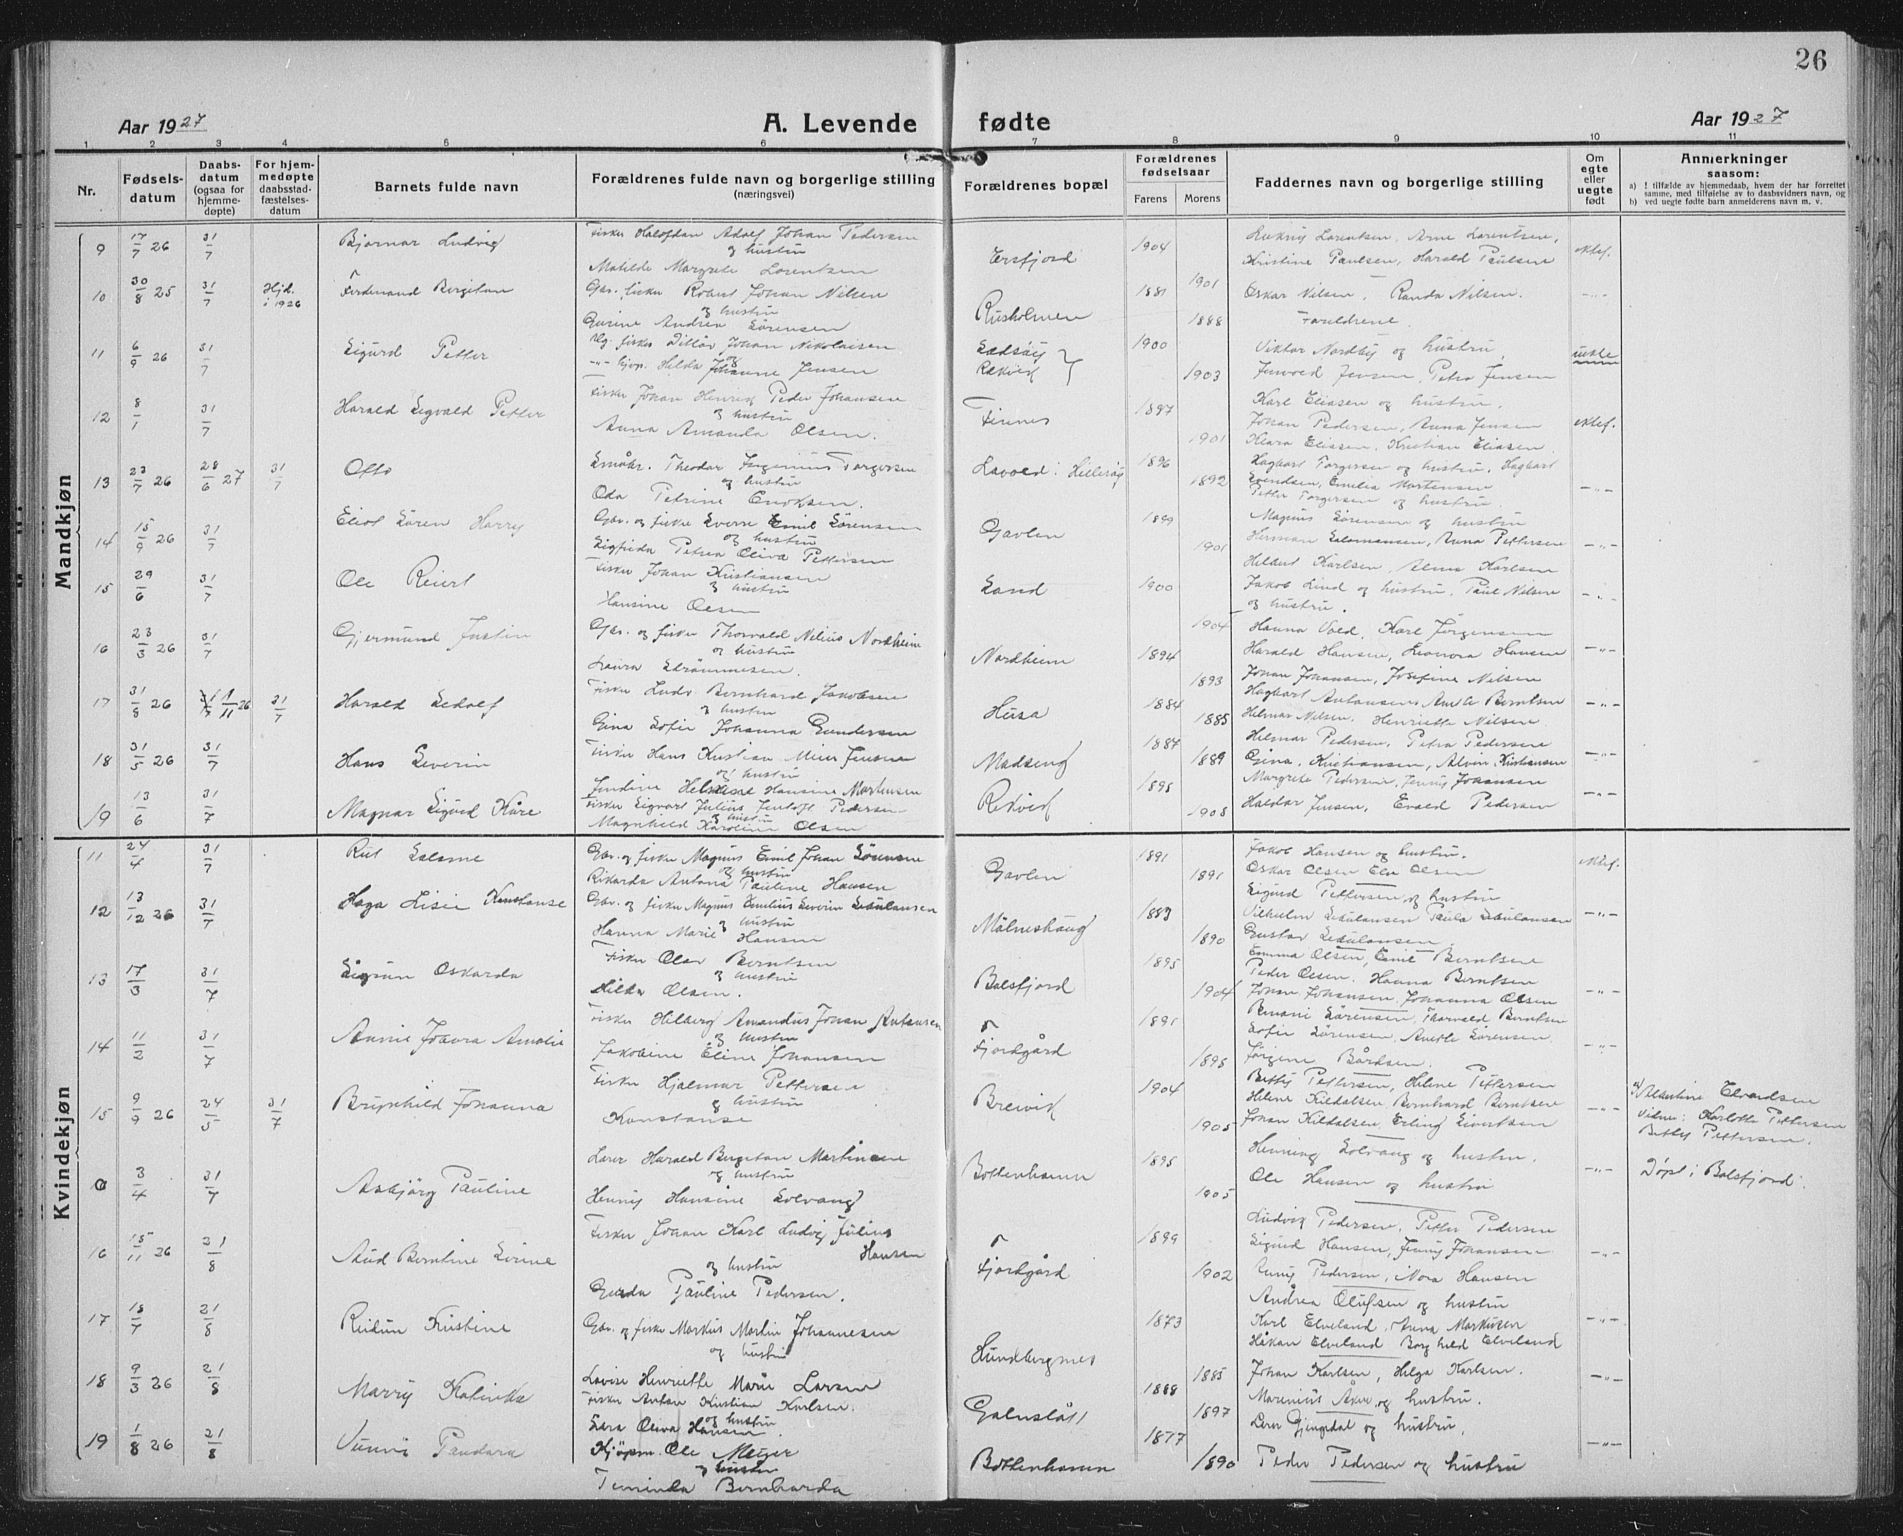 26
Aar 1927
A. Levende fødte
Aar 1927
1 2 3 4 5 6 7 8 9 10 11
Nr.
Fødselsdatum
Daabsdatum (ogsaa for hjemmedøpte)
For hjemmedøpte daabsstadfæstelsesdatum
Barnets fulde navn
Forældrenes fulde navn og borgerlige stilling (næringsvei)
Forældrenes bopæl
Forældrenes fødselsaar
Farens Morens
Faddernes navn og borgerlige stilling
Om egte eller uegte født
Anmerkninger saasom:
a) I tilfælde av hjemmedaab, hvem der har forrettet samme, med tilføielse av to daabsvidners navn, og
b) ved uegte fødte barn anmelderens navn m. v.
Mandkjøn
9 17/7 26 31/7 Bjarnar Ludvig
Fisker Halofdan Adolf Johan Pedersen og hustru
Matilde Margrete Lorentsen
Ersfjord 1904 1901
Kristine Paulsen, Harald Paulsen
ektef.
10 30/8 25 31/7 Hjd. i 1926 Ferdinand Bergiton
Gbr. fisker Robert Johan Nilsen og hustru
Gurine Andrea Sørensen
Rusholmen 1881 1888
Oskar Nilsen, Randa Nilsen.
Foreldrene.
11 6/9 26 31/7 Sigurd Petter
Ug. fisker Ditløv Johan Nikolaisen og
Hilda Johanne Jensen
1900 1903
Viktor Nordby og hustru,
Petra Jensen
uekte
12 8/1 31/7 Harald Sigvald Petter
Fisker Johan Henrik Peder Johansen og hustru
Anna Amanda Olsen.
Finnes 1897 1901
Karl Eliasen og hustru,
Johan Pedersen, Anna Jensen
Klara Eliassen, Kristian Eliasen
ektef.
13 23/7 26 28/6 27 31/7 Otto
Småbr. Theodor Jørginius Torgersen og hustru
Oda Petrine Enoksen.
Lavold i Hillesøy 1896 1892
Hagbart Torgersen og hustru, Hagbart
Svendsen, Emelia Mortensen
Petter Torgersen og hustru
14 15/9 26 31/7 Eliot Søren Harry
Gbr. og fisker Sverre Emil Sørensen og hustru
Sigfrida Petrea Oliva Pettersen
Gavlen 1899 1901
Magnus Sørensen og hustru
Herman Salamonsen, Anna Pettersen
15 29/6 31/7 Ole Reiert
Fisker Johan Kristiansen og hustru
Hansine Olsen
Sand 1900 1904
Hildert Karlsen, Alma Karlsen
Jakob Lind og hustru, Paul Nilsen
og hustru.
16 23/3 26 31/7 Gjermund Justin
Gbr. og fisker Thorvald Nilius Nordheim og hustru
Laura Strømmesen
Nordheim 1894 1893
Hanna Vold, Karl Jørgensen
Harald Hansen, Leonora Hansen
Johan Johansen, Josefine Nilsen
17 31/8 26 1/11 26 31/7 Harald Sedolf
Fisker Ludv Bernhard Jakobsen og hustru
Gina Sofie Johanna Gundersen
Husa 1884 1885
Hilmar Nilsen, Henriette Nilsen
18 31/5 26 31/7 Hans Severin
Fisker Hans Kristian Meier Jensen og hustru
Jendine Helmine Hansine Mortensen
Madseng 1884 1889
Helmar Pedersen, Petra Pedersen
Gina Kristiansen, Alvin Kristiansen
19 13/6 31/7 Magnar Sigurd Kåre
Fisker Sigvart Julius Jentoft Pedersen og hustru
Magnhild Karoline Olsen
Rekvik 1895 1908
Margrete Pedersen, Jenny Johansen
Haldor Jensen, Evald Pedersen
Kvindekjøn
11 24/4 31/7 Rut Salome
Gbr. og fisker Magnus Emil Johan Sørensen og hustru
Rikarda Antona Pauline Hansen
Gavlen 1891 1891
Jakob Hansen og hustru.
Oskar Olsen Ela Olsen
ektef.
12 13/12 26 31/7 Haga Lisei Konstanse
Gbr. og fisker Magnus Emilius Severin Sedulansen og hustru
Hanna Marie Hansen
Målneshaug 1883 1890
Sigurd Pettersen og hustru
Vilhelm Sedulansen Paula Sedulansen
Gustav Sedulansen
13 17/3 31/7 Sigrun Oskarda
Fisker Olav Berntsen og hustru
Hilda Olsen.
Balsfjord 1895 1904
Emma Olsen, Emil Berntsen
Peder Olsen, Hanna Berntsen
Johan Johansen, Johanna Olsen
14 11/2 31/7 Annie Jovra Amalie
Fisker Hilberg Amandus Johan Antonsen og hustru
Jakobine Eline Johansen
Fjordgård 1891 1895
Sofie Sørensen, Anette Sørensen.
Jørgine Bårdsen.
15 9/9 26 24/5 31/7 Brynhild Johanna
Fisker Hjalmar Pettersen og hustru
Konstanse
Breivik 1904 1905
Betty Pettersen, Helene Pettersen
Helene Kildalsen, Bernhard Berntsen
Johan Kildalsen, Erling Sivertsen
a) Valentine Elvardsen
Vidner: Karlotte Pettersen
Betty Pettersen.
0 3/4 31/7 Asbjørg Pauline
Lærer Harald Bergiton Martinsen og hustru
Henny Hansine Solvang
Bottenhamn 1895 1905
Henning Solvang og hustru.
Ole Hansen og hustru
Døpt i Balsfjord.
16 15/11 26 21/8 Aud Berntine Sirine
Fisker Johan Karl Ludvig Julius Hansen og hustru
Gerda Pauline Pedersen.
Fjordgård 1899 1902
Ludvik Pedersen, Petter Pedersen
Sigurd Hansen, Jenny Johansen
Jenny Pedersen, Nora Hansen
17 15/7 21/8 Reidun Kristine
Gbr. og fisker Markus Martin Johannesen og hustru
Lovise Henriette Marie Larsen
Hundbergnes 1873 1885
Andrea Olufsen og hustru
Karl Elveland, Anna Markusen
Håkan Elveland Borghild Elveland
18 9/3 26 21/8 Marry Katinka
Fisker Anton Kristian Karlsen. og hustru
Sara Oliva Hansen
Galnslått 1888 1897
Johan Karlsen, Helga Karlsen.
Marenius Aker og hustru.
19 1/8 26 21/8 Sunni Pandora
Kjøpm. Ole Meyer og hustru
Teminda Bernharda
Bottenhamn 1877 1890
Lærer Gjengedal og hustru,
Peder Pedersen og hustru